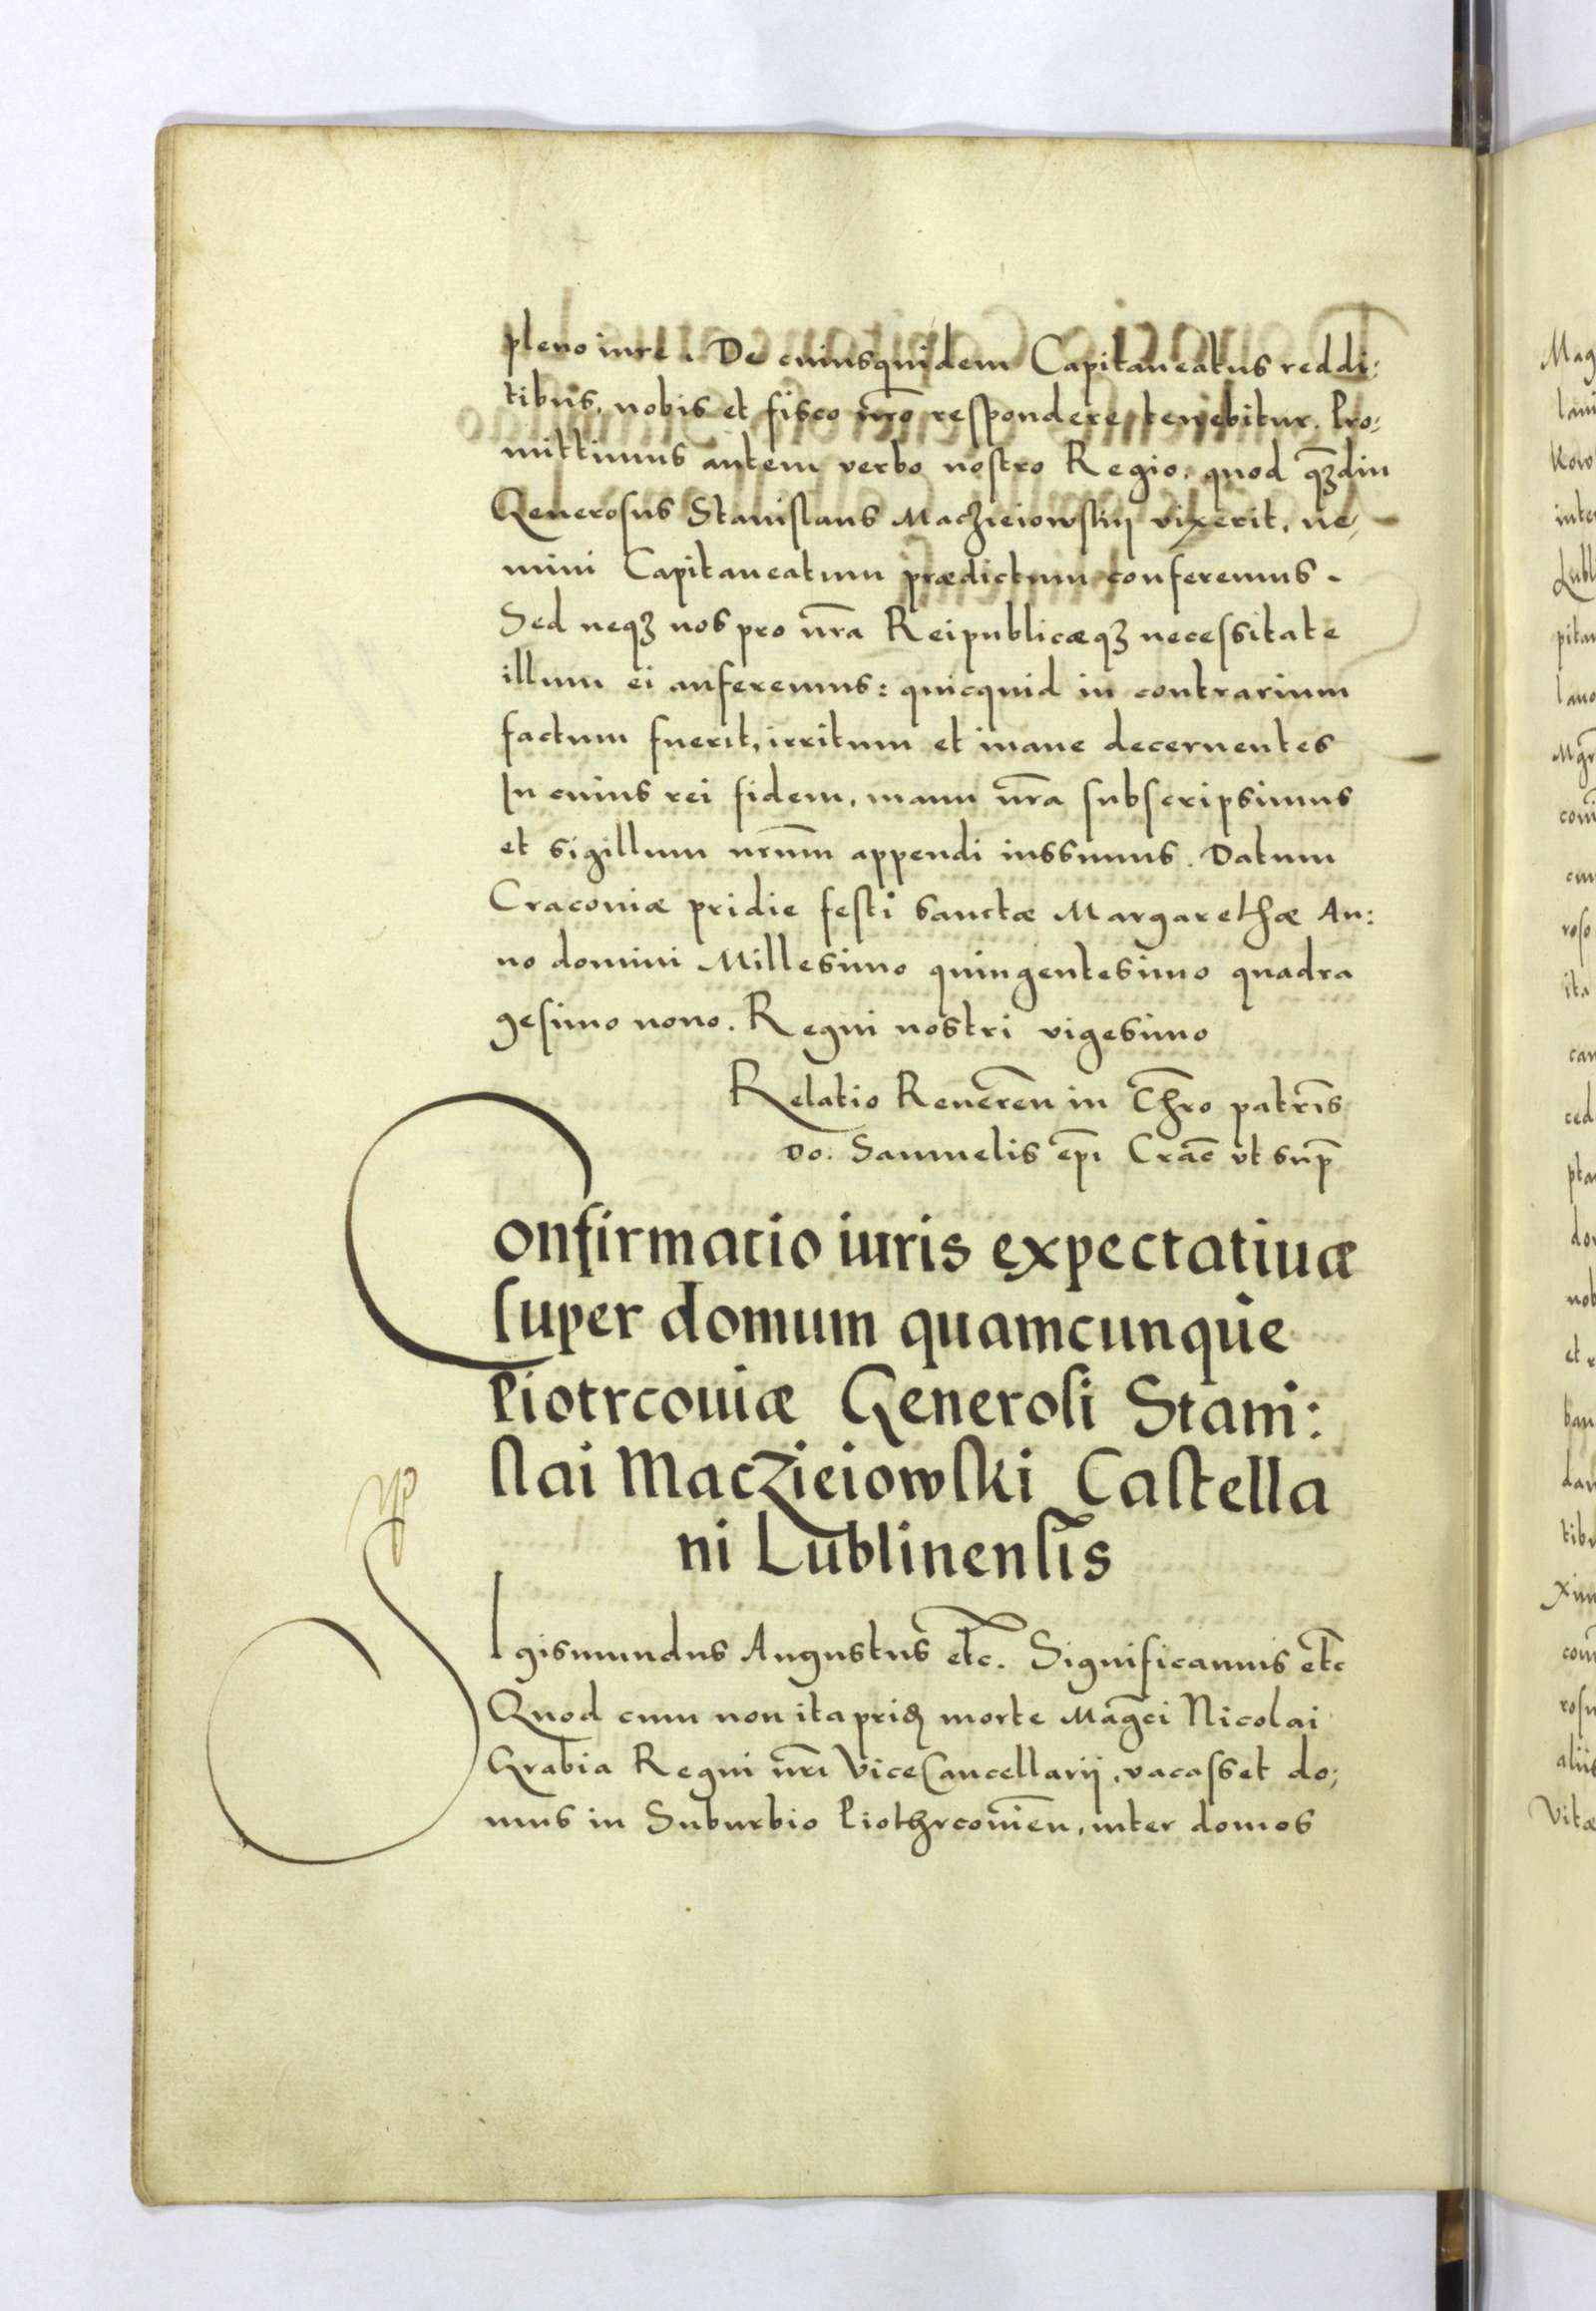 pleno iure. De cuiusquidem Capitaneatus reddi:
tibus, nobis et fisco nr̃o respondere tenebitur. Pro:
mittimus autem verbo nostro Regio. quod q̃ꝫdiu
Generosus Stanislaus Maczieiowskij vixerit, ne,
mini Capitaneatum prædictum conferemus.
Sed neqꝫ nos pro nr̃a Reipublicæqꝫ necessitate
illum ei auferemus: quicquid in contrarium
factum fuerit, irritum et inane decernentes
In cuius rei fidem, manu nr̃a subscripsimus
et sigillum nrũm appendi iussimus. Datum
Cracoviæ pridie festi sanctæ Margarethæ An:
no domini Millesimo quingentesimo quadra
gesimo nono. Regni nostri vigesimo
Relatio Reuerẽn in Chr̃o patris
Do. Samuelis ep̃i Crac̃ vt sup̃
Confirmatio iuris expectatiuæ
super domum quamcunque
Piotrcouiæ Generosi Stani:
slai Maczieiowski Castella
ni Lublinensis
SIgismundus Augustus etc. Significamus etc
Quod cum non ita pridẽ morte Mag̃ci Nicolai
Grabia Regni nr̃i ViceCancellarij, vacasset do;
mus in Suburbio Piothrcouiẽn, inter domos
Mag
lani
kow
inte
Lubl
pitan
lano
Mgr̃
roso
ita
can
ced
pta
nob
et
ban
dan
tibu
Xim
rosu
aliis
Vitæ